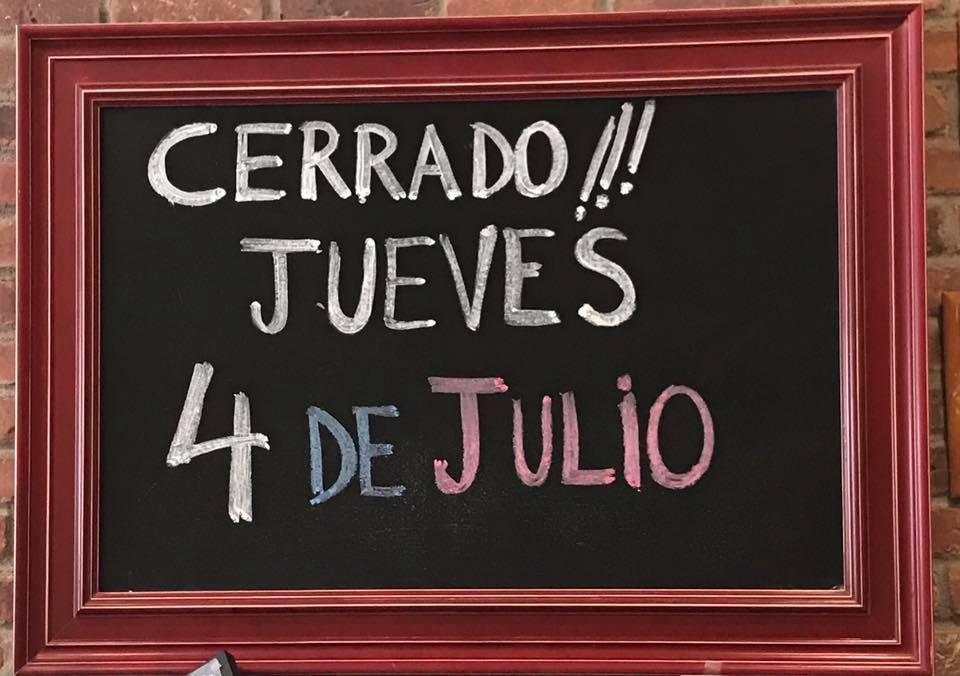 CERRADO!!!
JUEVES
4 DE JULIO